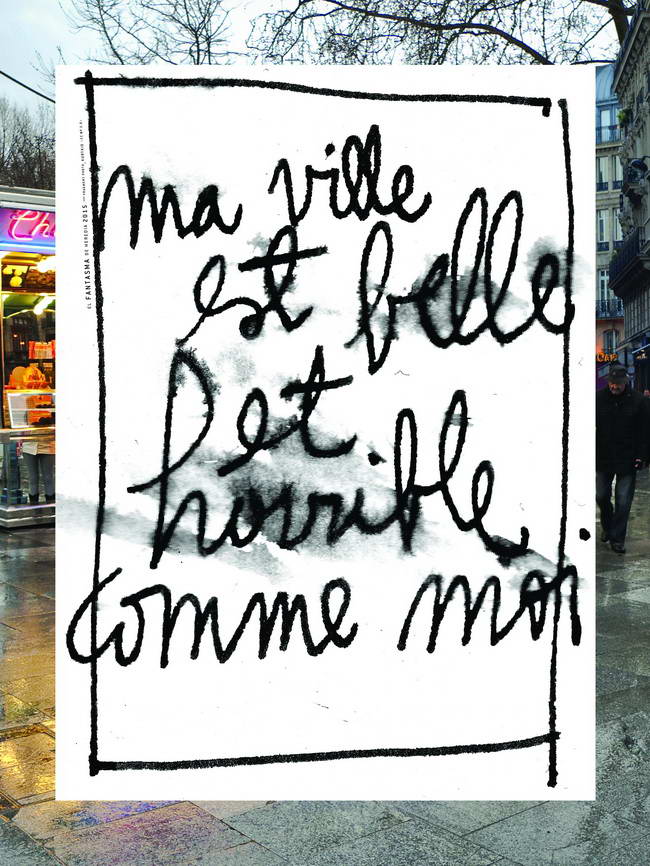 ma ville
est belle
et
horrible
comme moi
EL FANTASMA DE HEREDIA 2015